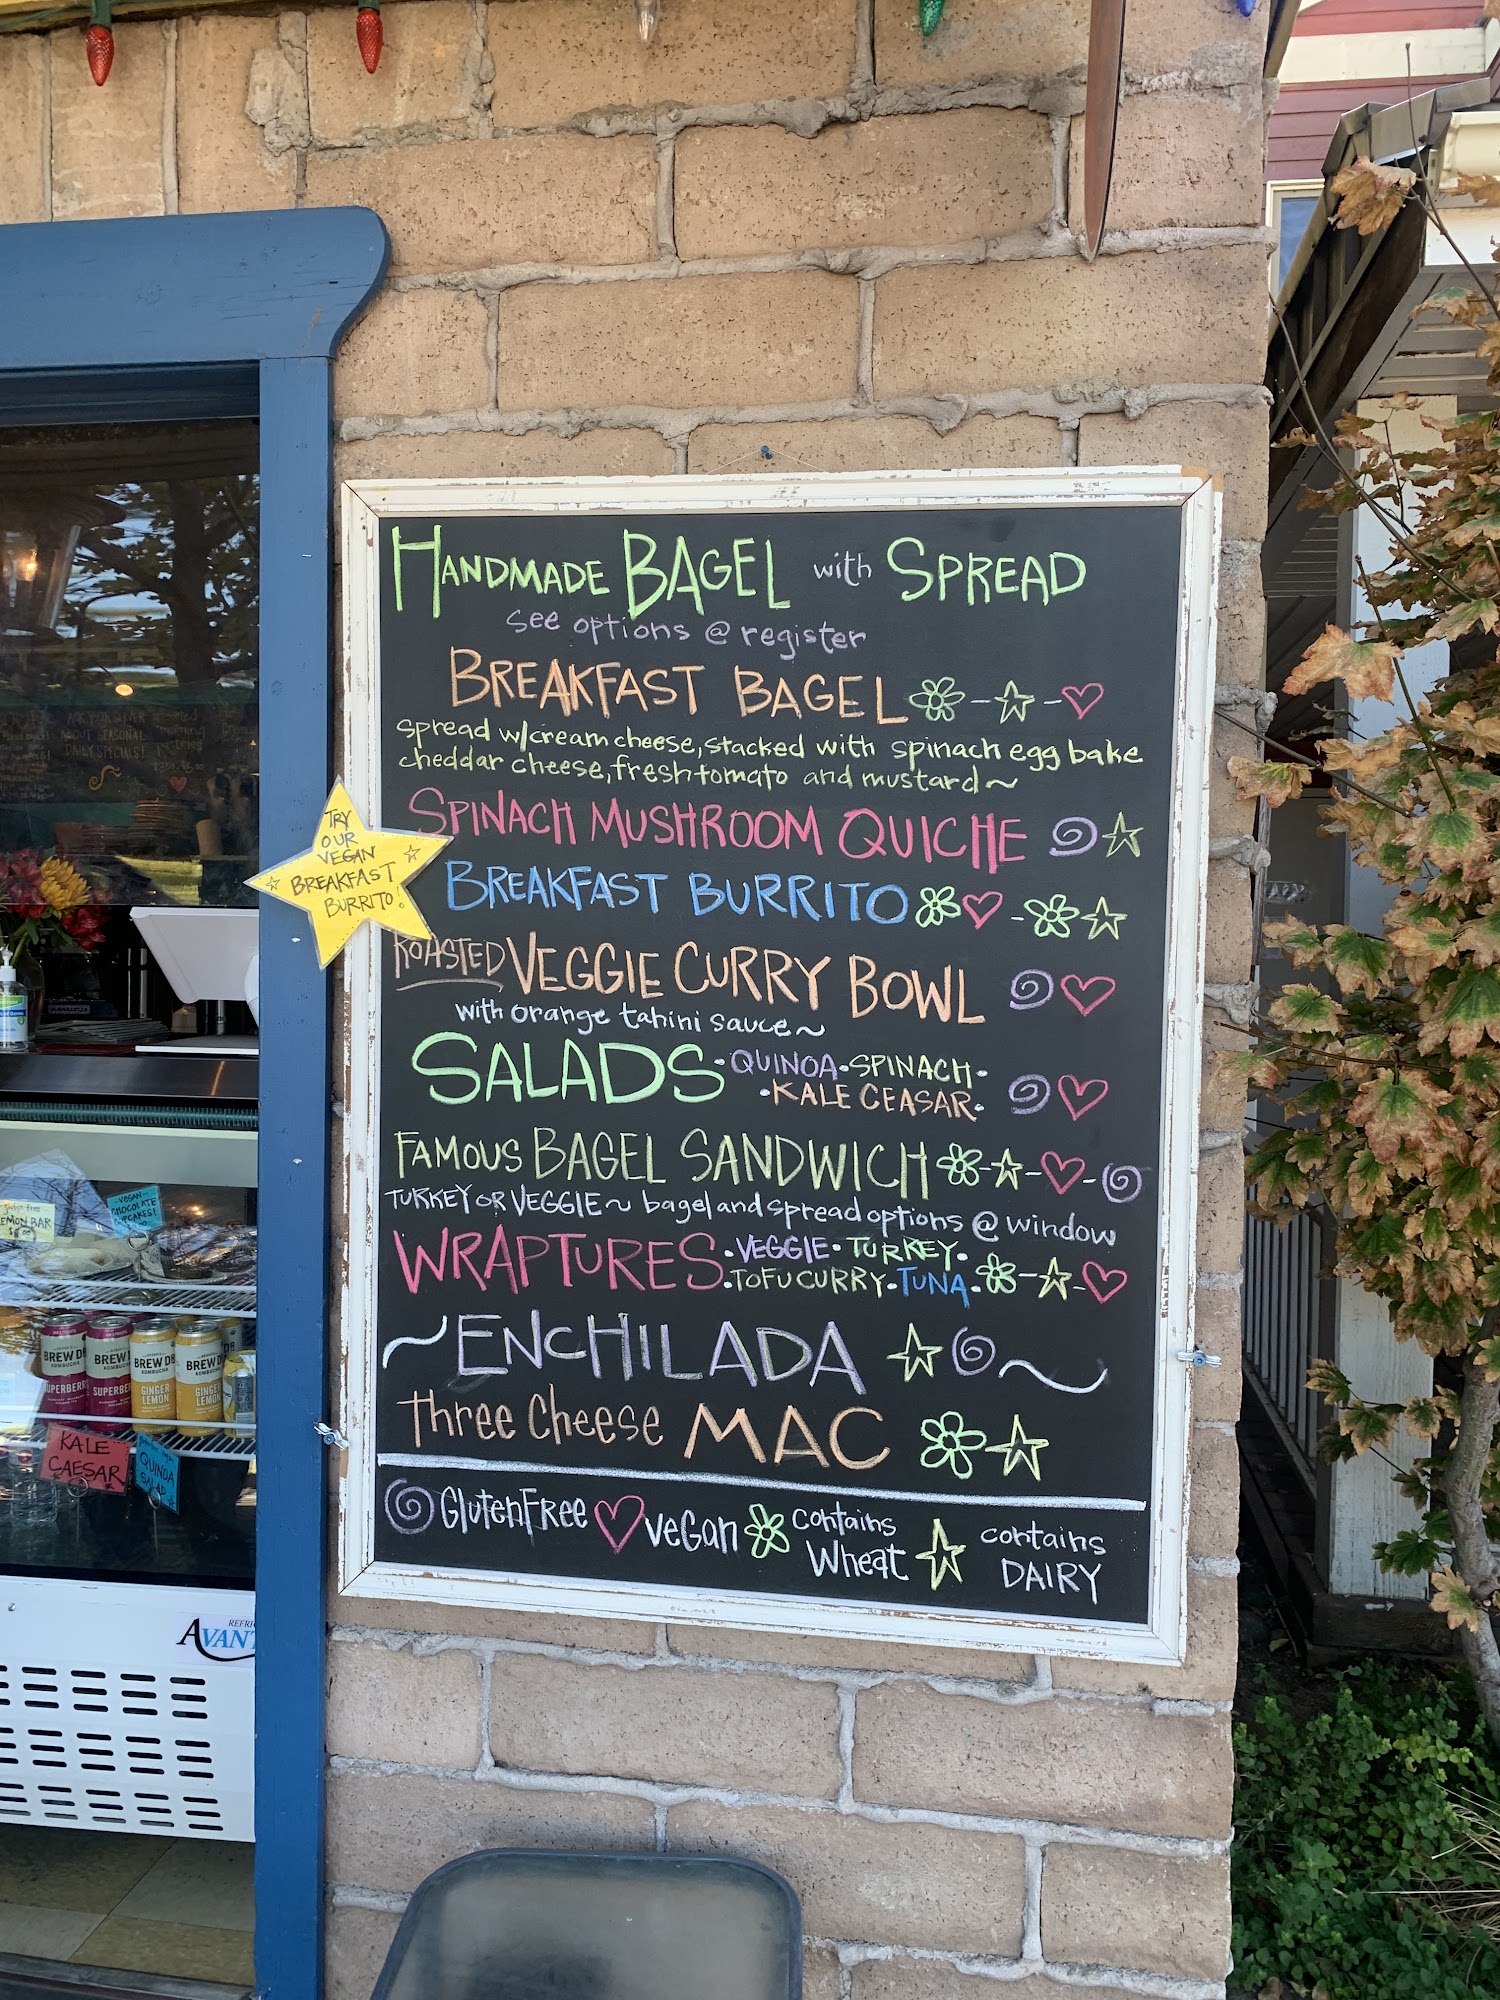 HANDMADE BAGEL with SPREAD
see options @ register
BREAKFAST BAGEL
spread w/cream cheese, stacked with spinach egg bake
cheddar cheese, fresh tomato and mustard~
SPINACH MUSHROOM QUICHE
TRY
OUR
VEGAN
BREAKFAST
BURRITO!
BREAKFAST BURRITO
ROASTED VEGGIE CURRY BOWL
with orange tahini sauce~
SALADS · QUINOA · SPINACH ·
· KALE CEASAR ·
FAMOUS BAGEL SANDWICH
TURKEY OR VEGGIE~ bagel and spread options @ window
WRAPTURES · VEGGIE · TURKEY ·
· TOFU CURRY · TUNA ·
~ENCHILADA~
Three Cheese MAC
GlutenFree veGan contains
Wheat
contains
DAIRY
ABOUT SEASONAL
DAILY SPECIALS!
LEMON BAR
-VEGAN-
CHOCOLATE
CUPCAKES!
BREW DR
KOMBUCHA
SUPERBERRY
BREW DR
KOMBUCHA
SUPERBER
BREW DR
KOMBUCHA
GINGER
LEMON
BREW DR
KOMBUCHA
GINGER
LEMON
KALE
CAESAR
QUINOA
SALAD
AVANT